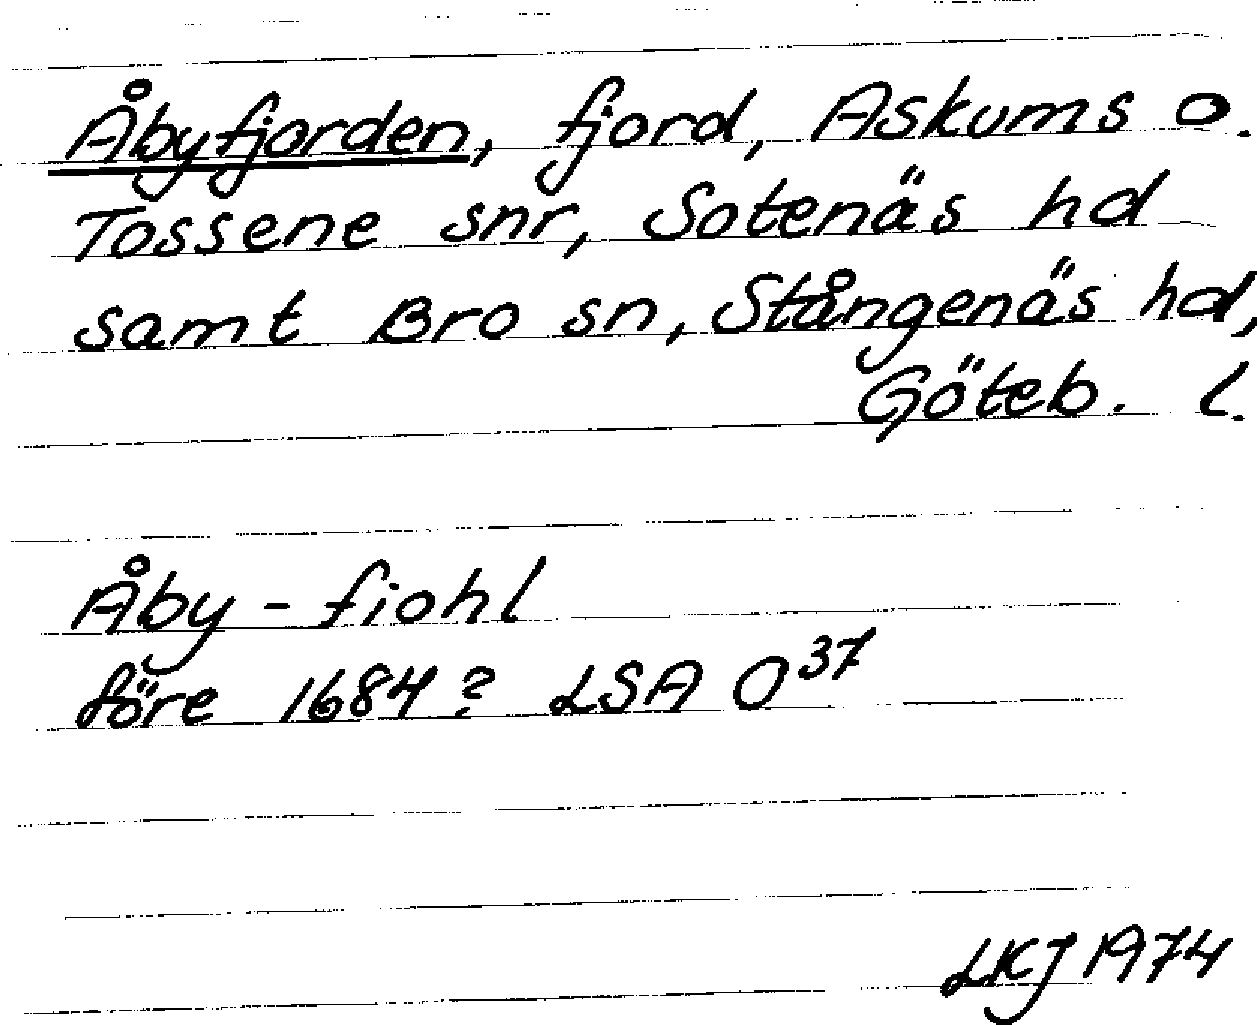 Åbyfjorden, fjord, Askums o.
Tossene snr, Sotenäs hd
samt Bro sn, Stångenäs hd,
Göteb. l.
Åby - fiohl
före 1684? LSA O³⁷
LKJ 1974